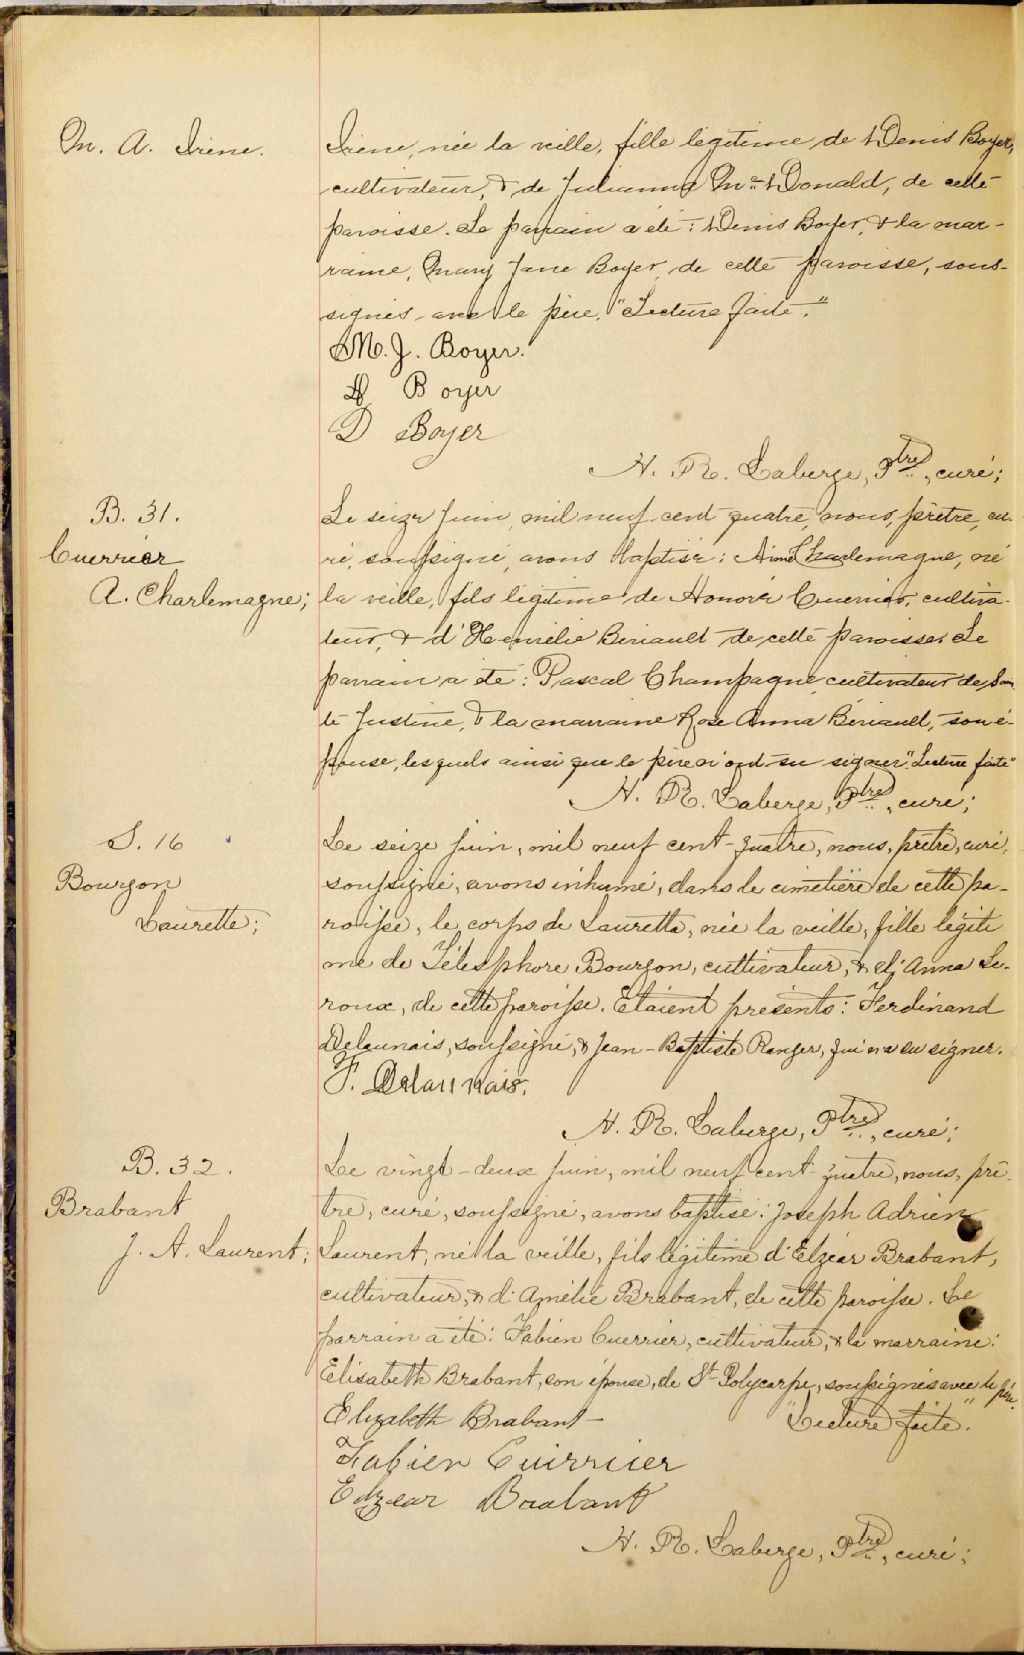 M. A. Irène.
Irène, née la veille, fille légitime de Denis Boyer,
cultivateur, & de Julianna Mc Donald, de cette
paroisse. Le parrain a été: Denis Boyer, & la mar-
raine, Mary Jane Boyer, de cette paroisse, sous-
signés avec le père. "Lecture faite."
M. J. Boyer.
D Boyer
D Boyer
H. R. Laberge, Ptre, curé;
B. 31.
Cuerrier
A. Charlemagne;
Le seize juin, mil neuf cent quatre, nous, prêtre, cu-
ré, soussigné, avons baptisé: Aimé Charlemagne, né
la veille, fils légitime de Honoré Cuerrier, cultiva-
teur, & d' Bériault de cette paroisse. Le
parrain a été: Pascal Champagne cultivateur de Sain
te Justine, & la marraine Rose Anna Bériault, son é-
pouse, lesquels ainsi que le père n'ont su signer. "Lecture faite"
H. R. Laberge, Ptre, curé;
S. 16
Bourgon
Laurette;
Le seize juin, mil neuf cent-quatre, nous, prêtre, curé,
soussigné, avons inhumé, dans le cimetière de cette pa-
roisse, le corps de Lauretta, née la veille, fille légiti
me de Télesphore Bourgon, cultivateur, & d'Anna Le-
roux, de cette paroisse. Etaient présents: Ferdinand
Delaunais, soussigné, & Jean-Baptiste Ranger, qui n'a su signer.
F. Delaunais.
H. R. Laberge, Ptre, curé;
B. 32.
Brabant
J. A. Laurent;
Le vingt-deux juin, mil neuf cent-quatre, nous, prê-
tre, curé, soussigné, avons baptisé: Joseph Adrien
Laurent, né la veille, fils légitime d'Elzéar Brabant,
cultivateur, & d'Amélie Brabant, de cette paroisse. Le
parrain a été: Fabien Cuerrier, cultivateur, & la marraine:
Elisabeth Brabant, son épouse, de St Polycarpe, soussignés avec le père.
Elizabeth Brabant- "Lecture faite."
Fabien Cuirrier
Elzear Brabant
H. R. Laberge, Ptre, curé;